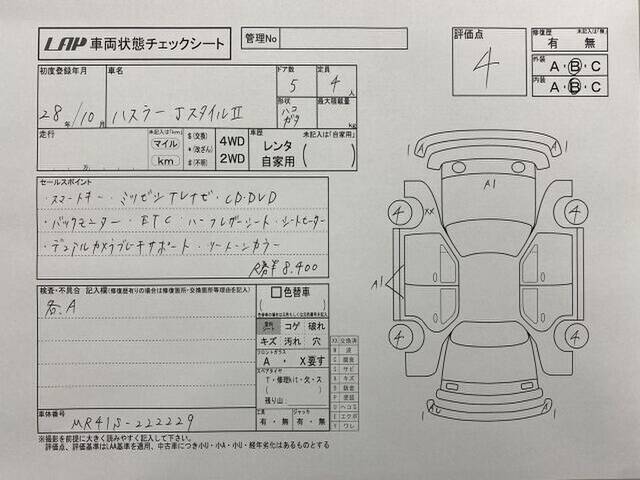 LAP 車両状態チェックシート
管理No
評価点
4
修復歴 未記入は「無」
有 ・ 無
外装 A・B・C
内装 A・B・C
初度登録年月
28年/10月
車名
ハスラー JスタイルⅡ
ドア数
5
定員
4人
形状
ハコ
ガタ
最大積載量
kg
走行
万
未記入は「km」
マイル
km
$(交換)
*(改ざん)
#(不明)
4WD
2WD
車歴 未記入は「自家用」
レンタ
自家用
セールスポイント
・スマートキー ・ミツビシナビ ・CD・DVD
・バックモニター ・ETC ・ハーフレザーシート ・シートヒーター
・デュアルカメラブレーキサポート ・ツートーンカラー
8.400
検査・不具合 記入欄(修復歴有りの場合は修復箇所・交換箇所等理由を記入)
各.A
色替車
コゲ 破れ
キズ 汚れ 穴
フロントガラス
A ・ X要す
スペアタイヤ
T・修理kit・欠・ス
残り山:
工具
有 ・ 無
ジャッキ
有 ・ 無
XX 交換済
W 波
C 腐食
S サビ
A キズ
B 鈑金
P 塗装
U ヘコミ
E エクボ
Y ワレ
車体番号
MR41S-222229
※撮影を前提に大きく読みやすく記入して下さい。
評価点、評価基準はLAA基準を適用、中古車につき小U・小A・小U・経年劣化はあるものとする
1
A
A
1
A1
4
XX
4
A1
4
4
1
AU
1